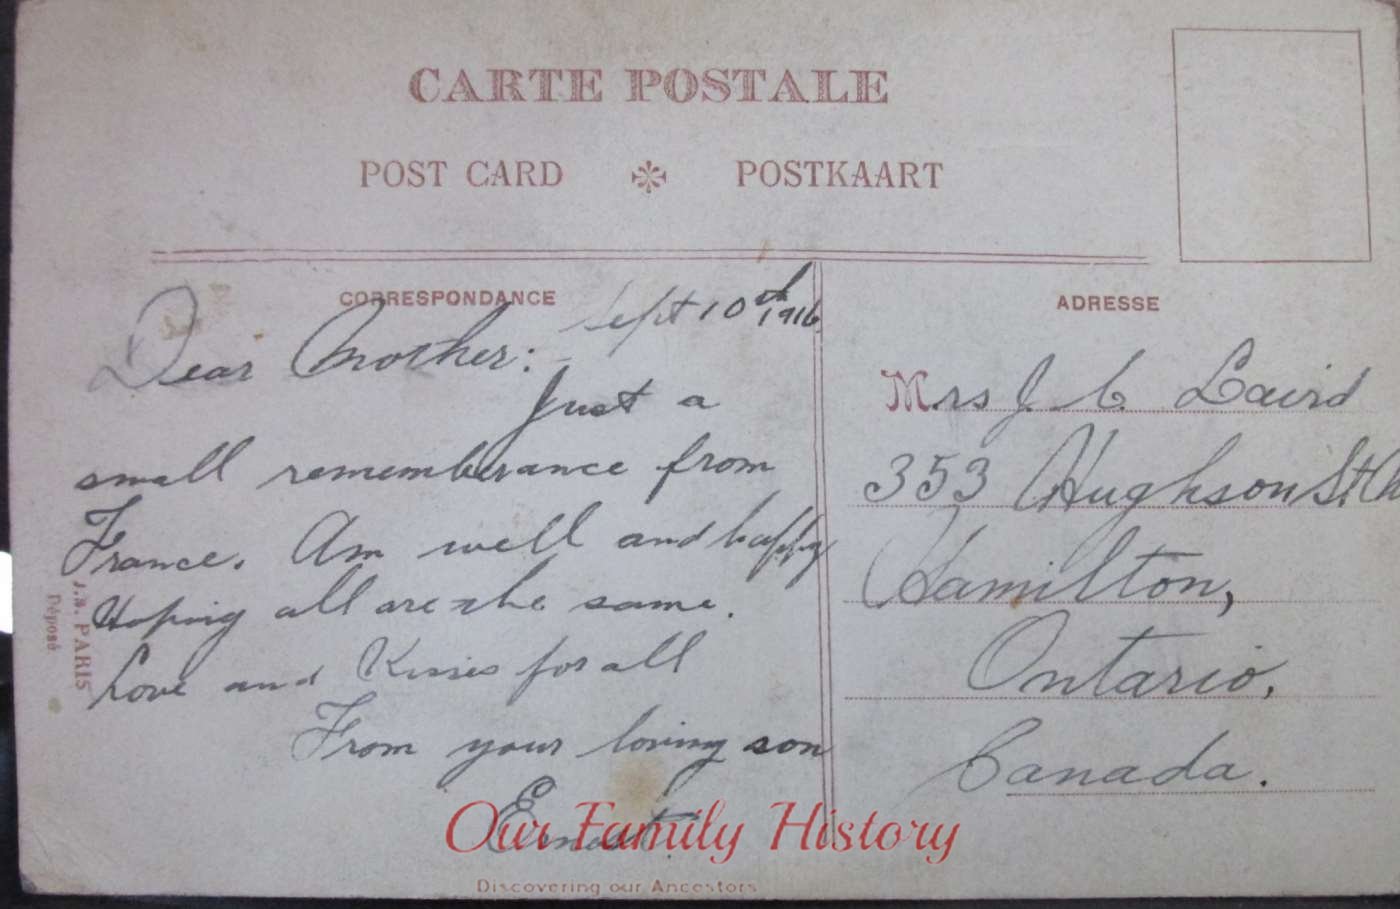 CARTE POSTALE
POST CARD POSTKAART
CORRESPONDANCE
Sept 10th 1916
Dear Mother:
Just a
small rememberance from
France. Am well and happy
Hoping all are the same.
Love and Kisses for all
From your loving son
Ernest.
J.B. PARIS
Déposé
ADRESSE
Mrs J. C. Laird
353 Hughson St
Hamilton,
Ontario,
Canada.
Our Family History
Discovering our Ancestors